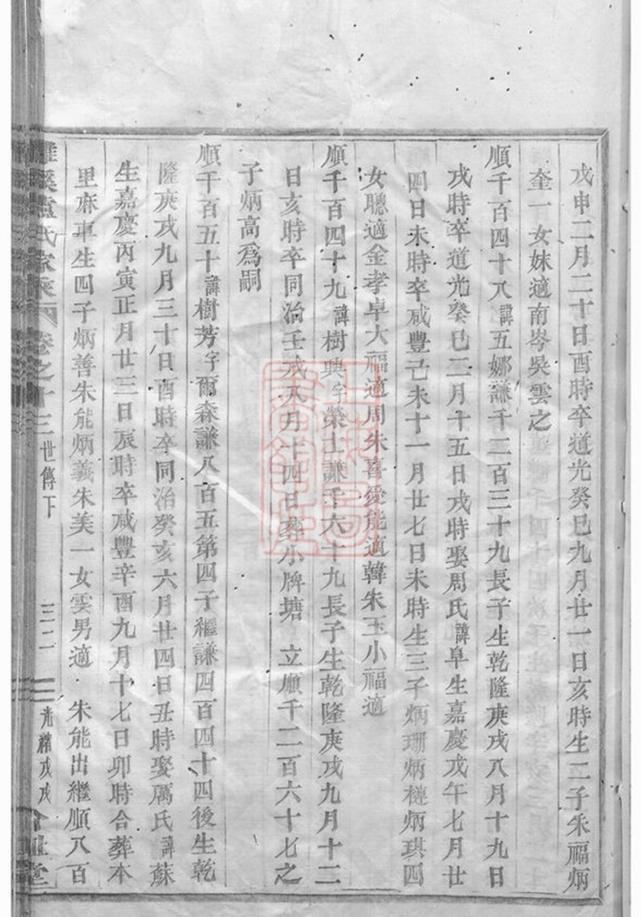 戊申二月二十日酉時卒道光癸巳九月廿一日亥時生二子朱福炳
奎一女妹適南岑吳雲之
順千百四十八諱五娜謙千二百三十九長子生乾隆庚戌八月十九日
戌時卒道光癸巳二月十五日戌時娶周氏諱阜生嘉慶戊午七月廿
四日未時卒咸豐己未十一月廿七日未時生三子炳珊炳槤炳琪四
女聰適金孝卓大福適周朱喜愛能適韓朱玉小福適
順千百四十九諱樹典字榮士謙千六十九長子生乾隆庚戌九月十二
日亥時卒同治壬戌八月十四日葬小牌塘 立順千二百六十七之
子炳高爲嗣
順千百五十諱樹芳字爾森謙八百五第四子繼謙四百四十四後生乾
隆庚戌九月三十日酉時卒同治癸亥六月廿四日丑時娶厲氏諱蘇
生嘉慶丙寅正月廿三日辰時卒咸豐辛酉九月十七日卯時合葬本
里麻車生四子炳善朱能炳義朱美一女雲男適 朱能出繼順八百
溪盧氏家乘 卷之十三 世傳下 三二 光緒戊戌 堂